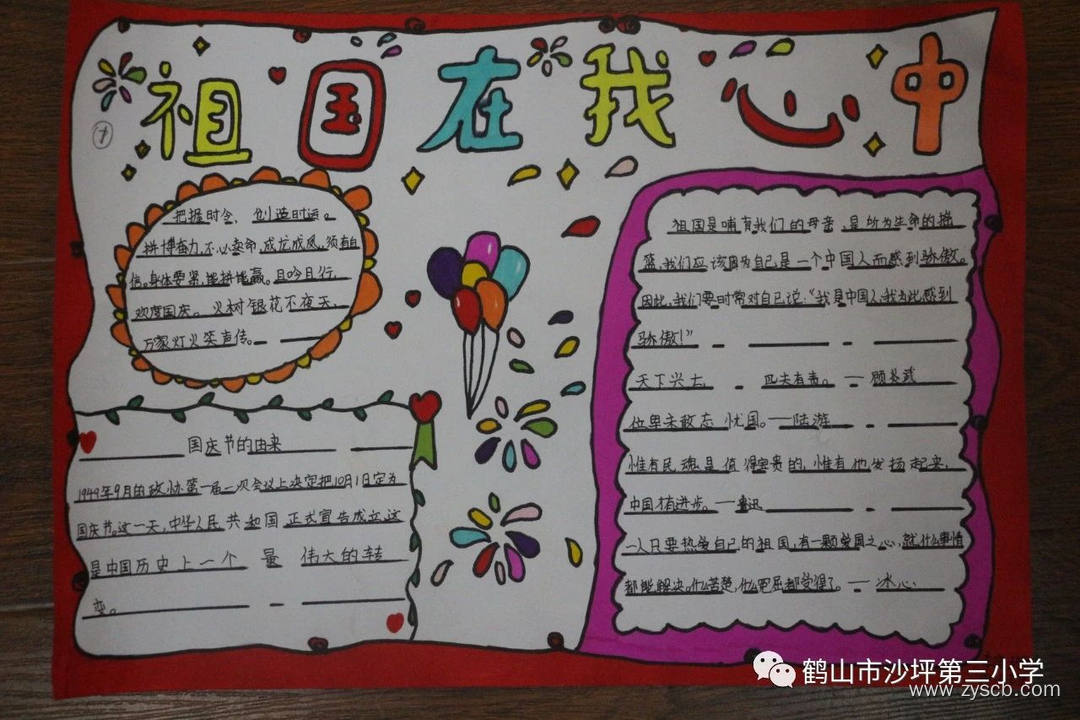 祖国在我心中
把握时令，创造时运。
拼搏奋力，不必委命，成龙成凤，须有自
信。身体要紧，能拼能赢。且吟且行，
欢度国庆。火树银花不夜天，
万家灯火笑声传。
国庆节的由来
1949年9月的政协第一届一次会议上决定把10月1日定为
国庆节。这一天，中华人民共和国正式宣告成立，这
是中国历史上一个最伟大的转
变。
祖国是哺育我们的母亲，是所为生命的摇
篮，我们应该因为自己是一个中国人而感到骄傲。
因此，我们要时常对自己说：“我是中国人，我为此感到
骄傲！”
天下兴亡，匹夫有责。——顾炎武
位卑未敢忘忧国。——陆游
惟有民魂是值得宝贵的，惟有他发扬起来，
中国有进步。——鲁迅
一人只要热爱自己的祖国，有一颗爱国之心，就什么事情
都能解决。什么苦楚，什么冤屈都受得了。——冰心
鹤山市沙坪第三小学
www.zyscb.com